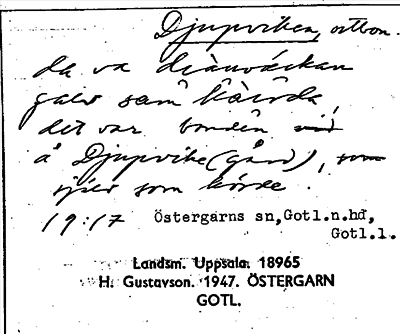 Djupviken, ortbon.
da va diänväckan
galv sam kàirda,
det var bonden
å Djupvike (gård), som
själv som körde.
19:17 Östergarns sn,Gotl.n.hd,
Gotl.l.
Landsm. Uppsala. 18965
H. Gustavson. 1947. ÖSTERGARN
GOTL.